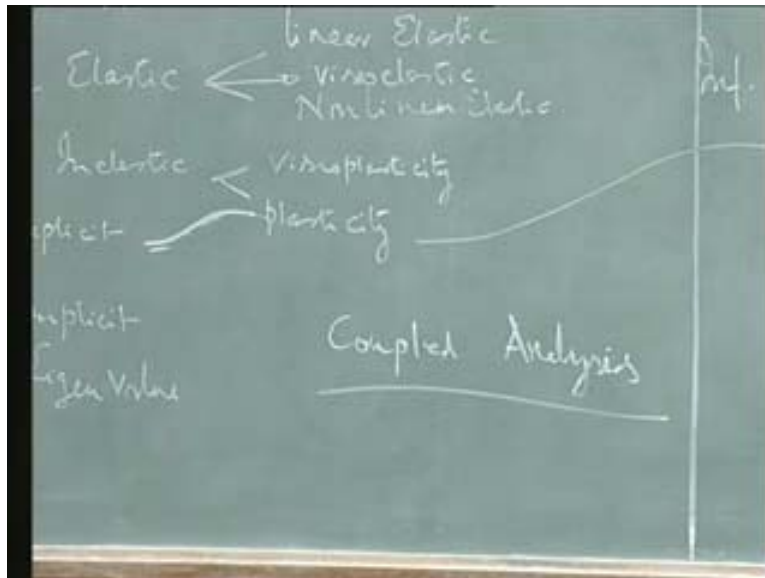 linear Elastic
Elastic
viscoelastic
Nonlinear Elastic.
Inelastic
Viscoplasticity
plasticity
plicit
mplicit
Eigen Value
Coupled Analysis